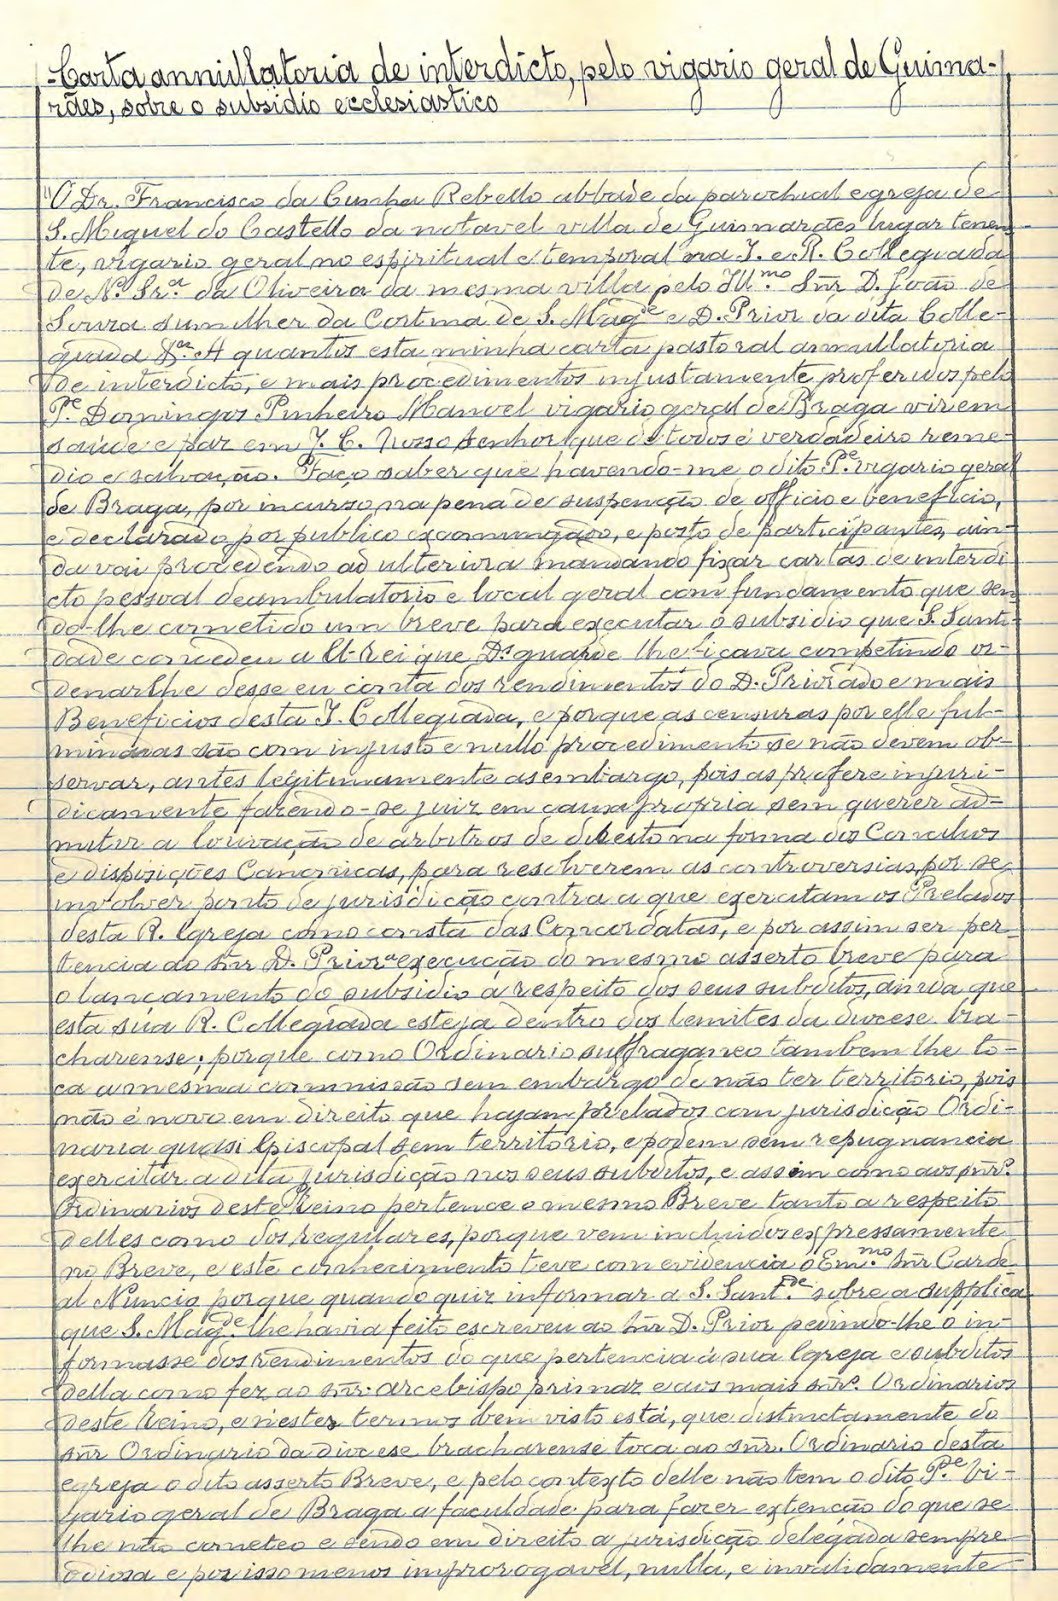 Carta annullatoria de interdicto, pelo vigario geral de Guima-
rães, sobre o subsidio ecclesiastico
"O Dr. Francisco da Cunha Rebello abbade da parochial egreja de
S. Miguel do Castello da notavel villa de Guimarães lugar tenen-
te, vigario geral no espiritual e temporal na I. e R. Collegiada
de N.ª Sr.ª da Oliveira da mesma villa pelo Ill.mo Snr. D. João de
Souza sumilher da Cortina de S. Mag.de e D. Prior da dita Colle-
giada &.ª A quantos esta minha carta pastoral annullatoria
de interdicto, e mais procedimentos injustamente proferidos pelo
P.e Domingos Pinheiro Manoel vigario geral de Braga virem
saude e paz em J. C. Nosso Senhor que de todos é verdadeiro reme-
dio e salvação. Faço saber que havendo-me o dito P.e vigario geral
de Braga, por incurso na pena de suspenção de officio e beneficio,
e declarado por publico excommungado, e posto de participantes, ain-
da vai procedendo ad ulteriora mandando fixar cartas de interdi-
cto pessoal deambulatorio e local geral com fundamento que sen-
do-lhe cometido um breve para executar o subsidio que S. Santi-
dade concedeu a El-Rei que D.s guarde lhe ficava competindo or-
denar lhe desse eu conta dos rendimentos do D. Priorado e mais
Beneficios desta I. Collegiada, e porque as censuras por elle ful-
minadas são com injusto e nullo procedimento se não devem ob-
servar, antes legitimamente as embargo, pois as profere injuri-
dicamente fazendo-se juiz em causa propria sem querer ad-
mittir a louvação de arbitros de direito na forma dos Concilios
e disposições Canonicas, para resolverem as controversias, por se
involver ponto de jurisdicção contra a que exercitam os Prelados
desta R. Igreja como consta das Concordatas, e por assim ser per-
tencia ao Snr. D. Prior a execução do mesmo asserto breve para
o lançamento do subsidio a respeito dos seus subditos, ainda que
esta súa R. Collegiada esteja dentro dos lemites da diocese bra-
charense; porque como Ordinario suffraganeo tambem lhe to-
ca a mesma commissão sem embargo de não ter territorio, pois
não é novo em direito que hajam prelados com jurisdicção Ordi-
naria quasi Episcopal sem territorio, e podem sem repugnancia
exercitar a dita jurisdicção nos seus subditos, e assim como aos snr.s
Ordinarios deste Reino pertence o mesmo Breve tanto a respeito
delles como dos regulares, porque vem incluidos expressamente
no Breve, e este conhecimento teve com evidencia o Em.mo Snr. Carde-
al Nuncio porque quando quiz informar a S. Sant.de sobre a supplica
que S. Mag.de lhe havia feito escreveu ao Snr. D. Prior pedindo-lhe o in-
formasse dos rendimentos do que pertencia á sua Igreja e subditos
della como fez ao snr. arcebispo primaz e aos mais snr.s Ordinarios
deste Reino, e n'estes termos bem visto está, que distinctamente do
snr. Ordinario da diocese bracharense toca ao snr. Ordinario desta
egreja o dito asserto Breve, e pelo contexto delle não tem o dito P.e Vi-
gario geral de Braga a faculdade para fazer extenção do que se
lhe não cometeo e sendo em direito a jurisdicção delegada sempre
odiosa e por isso menos improrogavel, nulla, e invalidamente